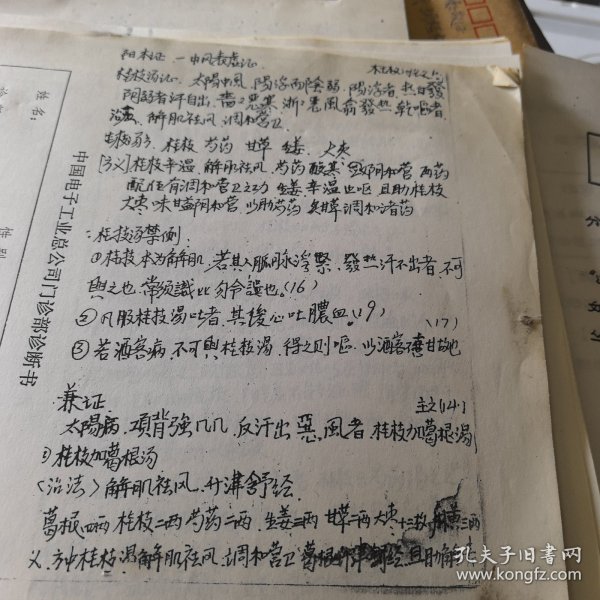 阳木证 一 中风表虚证
桂枝汤证 太陽中風 陽浮而陰弱 陽浮者 热自發
阴弱者汗自出 啬啬恶寒 淅淅恶風 翕翕發热 鼻鸣乾嘔者
治法 解肌祛风 调和营卫
方药 桂枝 芍药 甘草 生姜 大枣
[方义] 桂枝辛温 解肌祛风 芍药酸寒 阴和营 两药
配伍有调和营卫之功 生姜辛温止呕 且助桂枝
大枣味甘益阴和营 以助芍药 炙甘草调和诸药
桂枝汤禁例
①桂枝本为解肌 若其人脈浮緊 發热汗不出者 不可
與之也 常须識此 勿令誤也 (16)
②凡服桂枝湯吐者 其後必吐膿血 (19)
(17)
③若酒客病 不可與桂枝湯 得之则嘔 以酒客不喜甘故也
兼证
主之(14)
太陽病 項背強几几 反汗出 惡風者 桂枝加葛根湯
①桂枝加葛根汤
〈治法〉解肌祛风 升津舒经
葛根四两 桂枝二两 芍药二两 生姜三两 甘草二两 大枣十二枚
义 方中桂枝湯解肌祛风 调和营卫 葛根 且助解
中国电子工业总公司门诊部诊断书
姓名:
孔夫子旧书网
www.kongfz.com